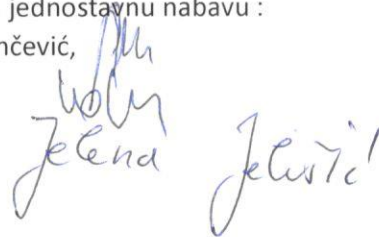 jednostavnu nabavu :
nčević,
Jelena Jelušić